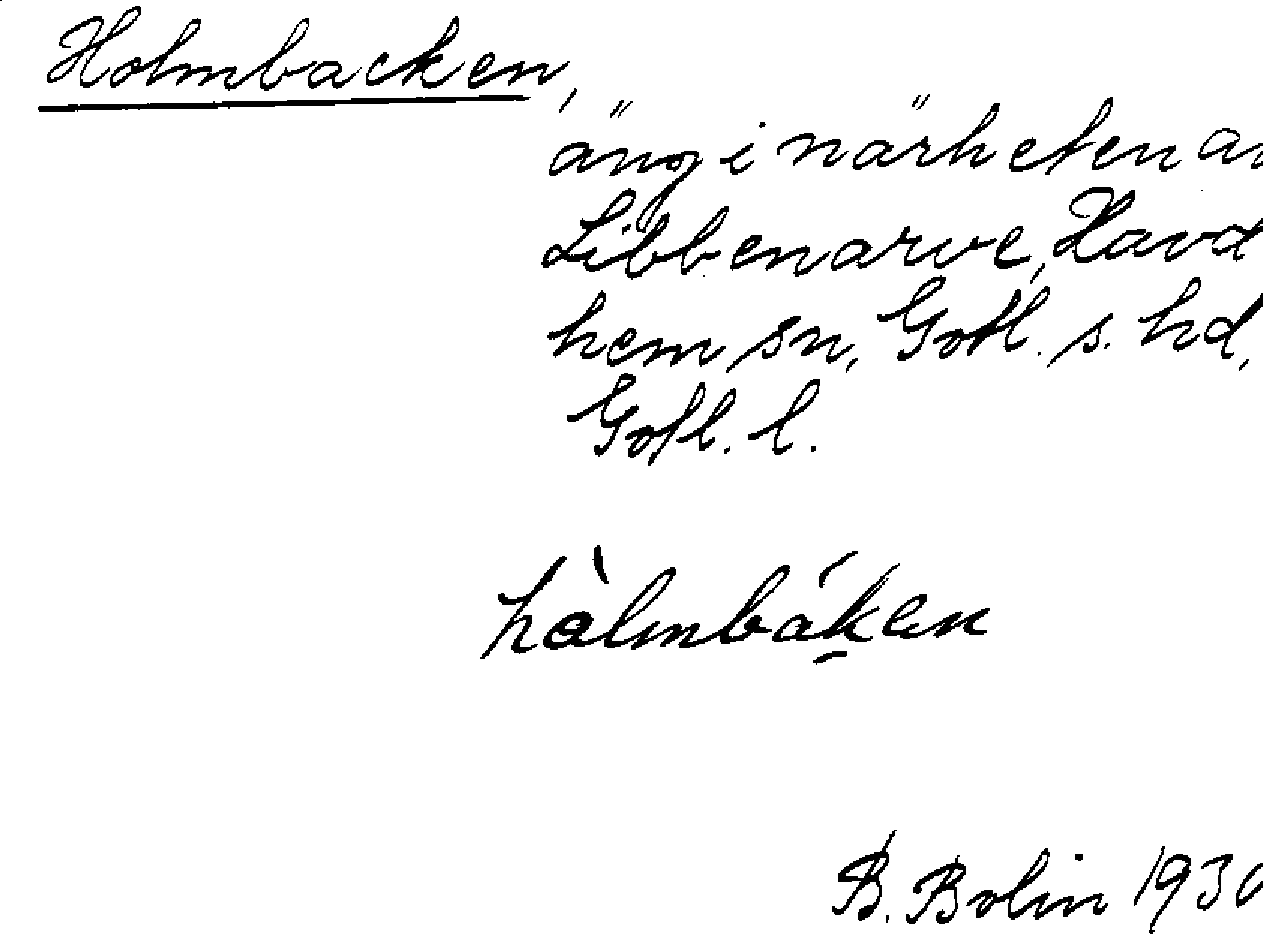 Holmbacken,
äng i närheten av
Libbenarve, Havd
hem sn, Gotl. s. hd,
Gotl. l.
hàlmbáken
B. Bolin 1930